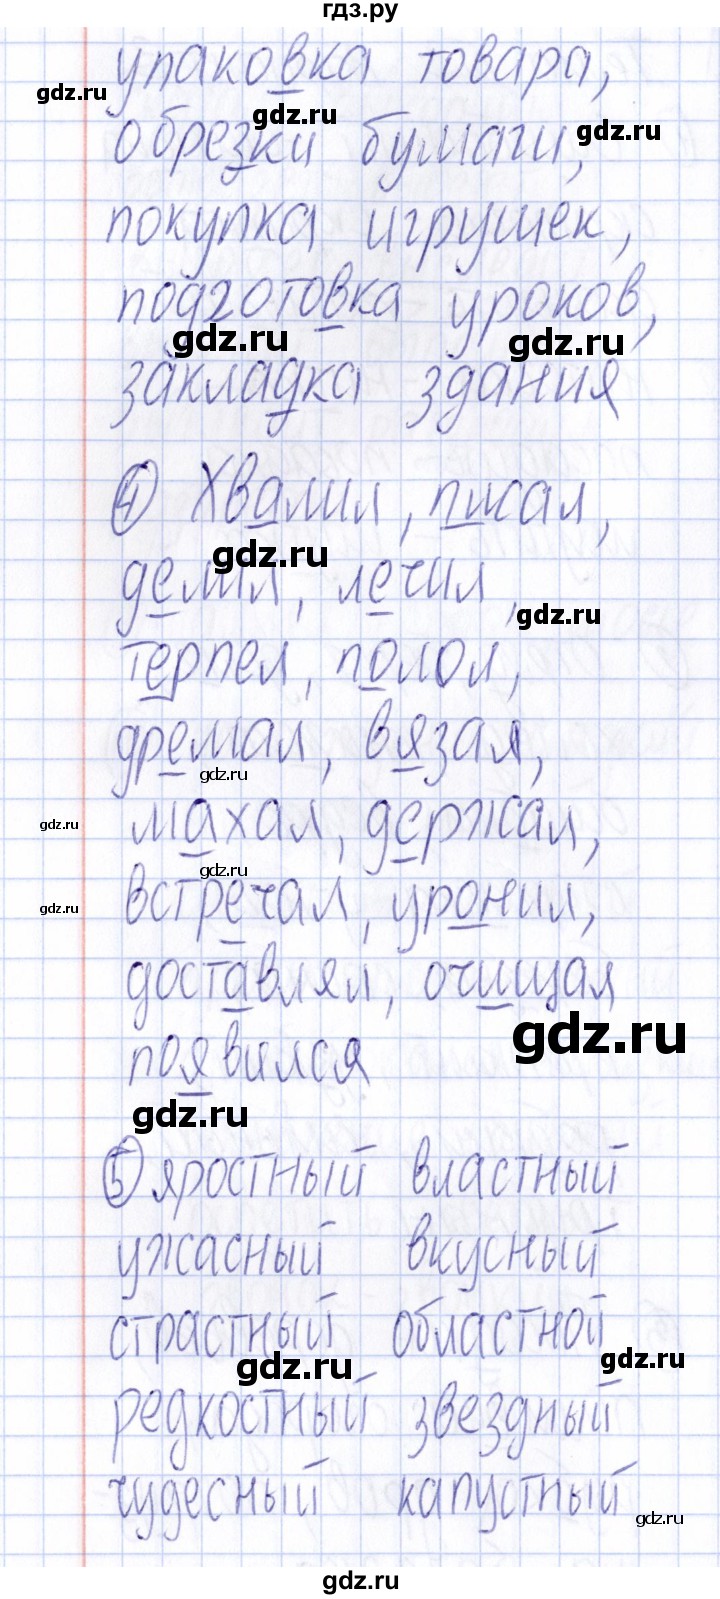 гдз.ру
упаковка товара,
gdz.ru
gdz.ru
gdz.ru
обрезки бумаги,
покупка игрушек,
подготовка уроков,
gdz.ru
gdz.ru
закладка здания
4 Хвалил, писал,
gdz.ru
делил, лечил,
gdz.ru
терпел, полол,
дремал, вязал,
gdz.ru
gdz.ru
махал, держал,
gdz.ru
gdz.ru
встречал, уронил,
доставлял, очищал
gdz.ru
появился
gdz.ru
5 яростный властный
ужасный вкусный
страстный областной
gdz.ru
gdz.ru
редкостный звездный
чудесный капустный
gdz.ru
gdz.ru